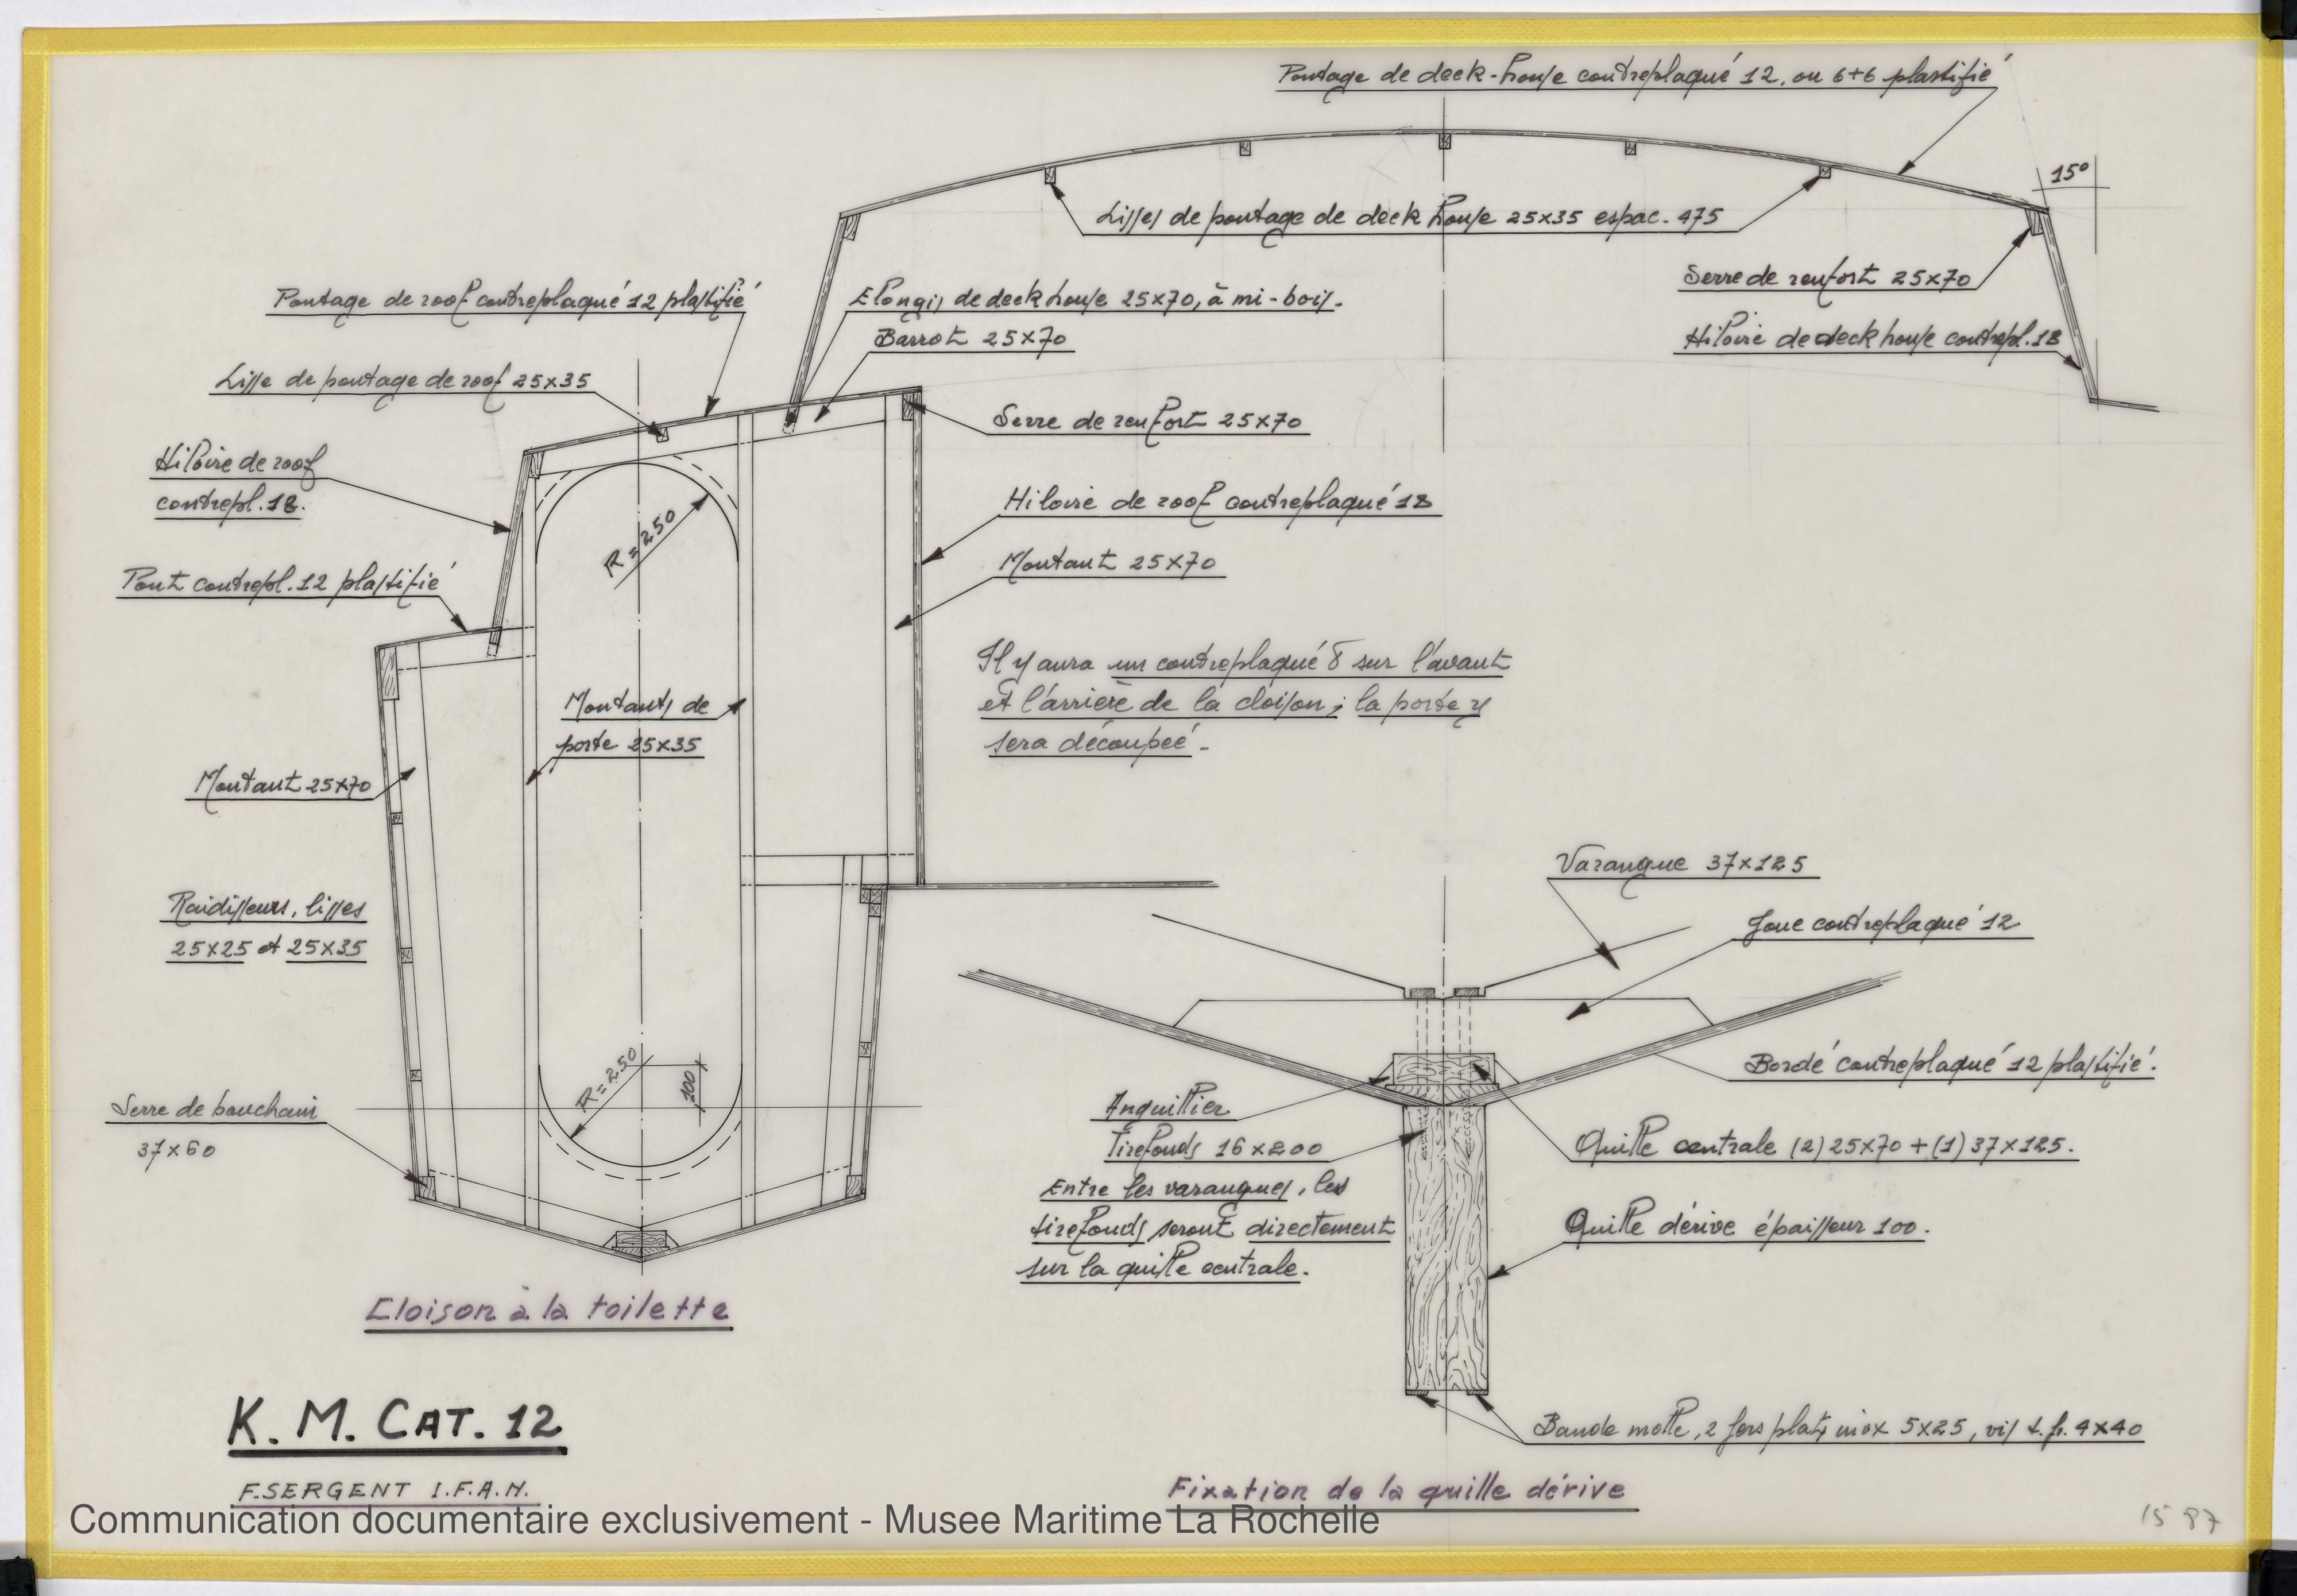 Pontage de deck-house contreplaqué 12, ou 6+6 plastifié
15°
Lisses de pontage de deck house 25x35 espac. 475
Serre de renfort 25x70
Hiloire de deck house contrepl. 18
Pontage de roof contreplaqué 12 plastifié
Elongis de deck house 25x70, à mi-bois.
Barrot 25x70
Lisse de pontage de roof 25x35
Serre de renfort 25x70
Hiloire de roof
contrepl. 18.
R=250
Hiloire de roof contreplaqué 18
Montant 25x70
Pont contrepl. 12 plastifié
Il y aura un contreplaqué 8 sur l'avant
et l'arrière de la cloison ; la porte y
sera découpée.
Montants de
porte 25x35
Montant 25x70
Raidisseurs, lisses
25x25 et 25x35
R=250
100
Serre de bouchain
37x60
Varangue 37x125
Joue contreplaqué 12
Bordé contreplaqué 12 plastifié.
Anguiller
Tirefonds 16x200
Entre les varangues, les
tirefonds seront directement
sur la quille centrale.
Quille centrale (2) 25x70 + (1) 37x125.
Quille dérive épaisseur 100.
Bande molle, 2 fers plats inox 5x25, vis t.fr. 4x40
Cloison à la toilette
Fixation de la quille dérive
K. M. CAT. 12
F. SERGENT I.F.A.N.
Communication documentaire exclusivement - Musee Maritime La Rochelle
15 87